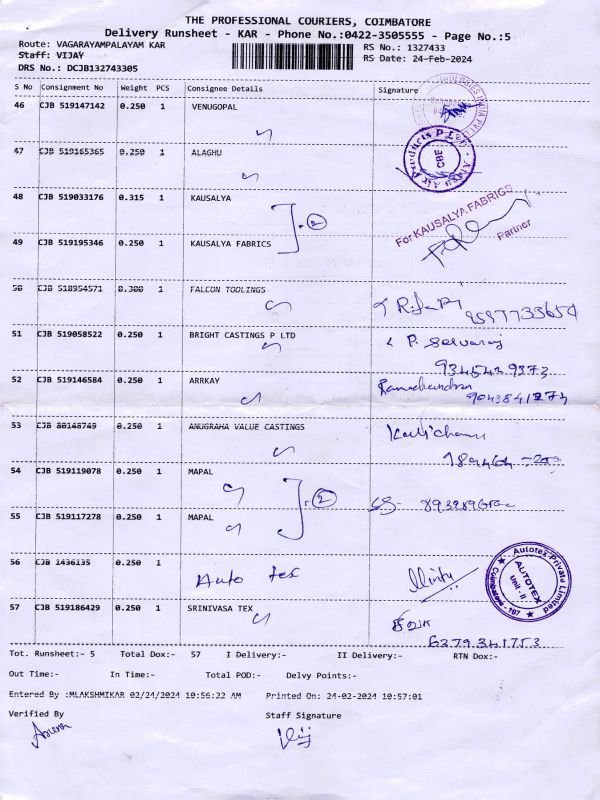 THE PROFESSIONAL COURIERS, COIMBATORE
Delivery Runsheet - KAR - Phone No.:0422-3505555 - Page No.:5
Route: VAGARAYAMPALAYAM KAR RS No.: 1327433
Staff: VIJAY RS Date: 24-Feb-2024
DRS No.: DCJB132743305
S No Consignment No Weight PCS Consignee Details Signature
46 CJB 519147142 0.250 1 VENUGOPAL
47 CJB 519165365 0.250 1 ALAGHU
CBE
48 CJB 519033176 0.315 1 KAUSALYA
2
For KAUSALYA FABRICS
Partner
49 CJB 519195346 0.250 1 KAUSALYA FABRICS
50 CJB 518954571 0.300 1 FALCON TOOLINGS
51 CJB 519058522 0.250 1 BRIGHT CASTINGS P LTD
P. Selvaraj
9345439373
52 CJB 519146584 0.250 1 ARRKAY
Ramachandran
9043841274
53 CJB 80148749 0.250 1 ANUGRAHA VALUE CASTINGS
54 CJB 519119078 0.250 1 MAPAL
2
55 CJB 519117278 0.250 1 MAPAL
56 CJB 1436135 0.250 1 Auto tex
Autotex Private Limited
AUTOTEX
Unit - II
Coimbatore - 107
57 CJB 519186429 0.250 1 SRINIVASA TEX
6379341753
Tot. Runsheet:- 5 Total Dox:- 57 I Delivery:- II Delivery:- RTN Dox:-
Out Time:- In Time:- Total POD:- Delvy Points:-
Entered By :MLAKSHMIKAR 02/24/2024 10:56:22 AM Printed On: 24-02-2024 10:57:01
Verified By Staff Signature